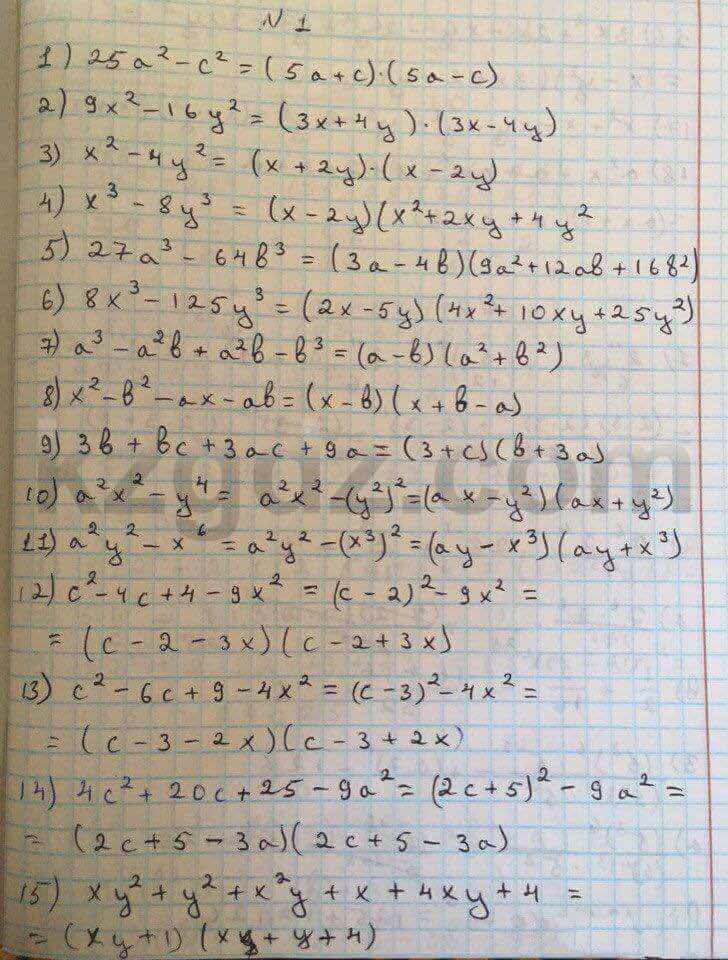 N 1
1) 25a² - c² = (5a+c)·(5a-c)
2) 9x² - 16y² = (3x+4y)·(3x-4y)
3) x² - 4y² = (x + 2y)·(x - 2y)
4) x³ - 8y³ = (x - 2y)(x²+2xy + 4y²
5) 27a³ - 64в³ = (3a - 4в)(9a²+12aв + 16в²)
6) 8x³ - 125y³ = (2x - 5y)(4x²+ 10xy + 25y²)
7) a³ - a²в + a²в - в³ = (a-в)(a²+в²)
8) x² - в² - ax - aв = (x - в)(x + в - a)
9) 3в + вc + 3ac + 9a = (3+c)(в+3a)
10) a²x² - y⁴ = a²x² - (y²)² = (ax - y²)(ax + y²)
11) a²y² - x⁶ = a²y² - (x³)² = (ay - x³)(ay + x³)
12) c² - 4c + 4 - 9x² = (c - 2)² - 9x² =
= (c - 2 - 3x)(c - 2 + 3x)
13) c² - 6c + 9 - 4x² = (c-3)² - 4x² =
= (c - 3 - 2x)(c - 3 + 2x)
14) 4c² + 20c + 25 - 9a² = (2c+5)² - 9a² =
= (2c + 5 - 3a)(2c + 5 - 3a)
15) xy² + y² + x²y + x + 4xy + 4 =
= (xy+1)(x + y + 4)
kzgdz.com